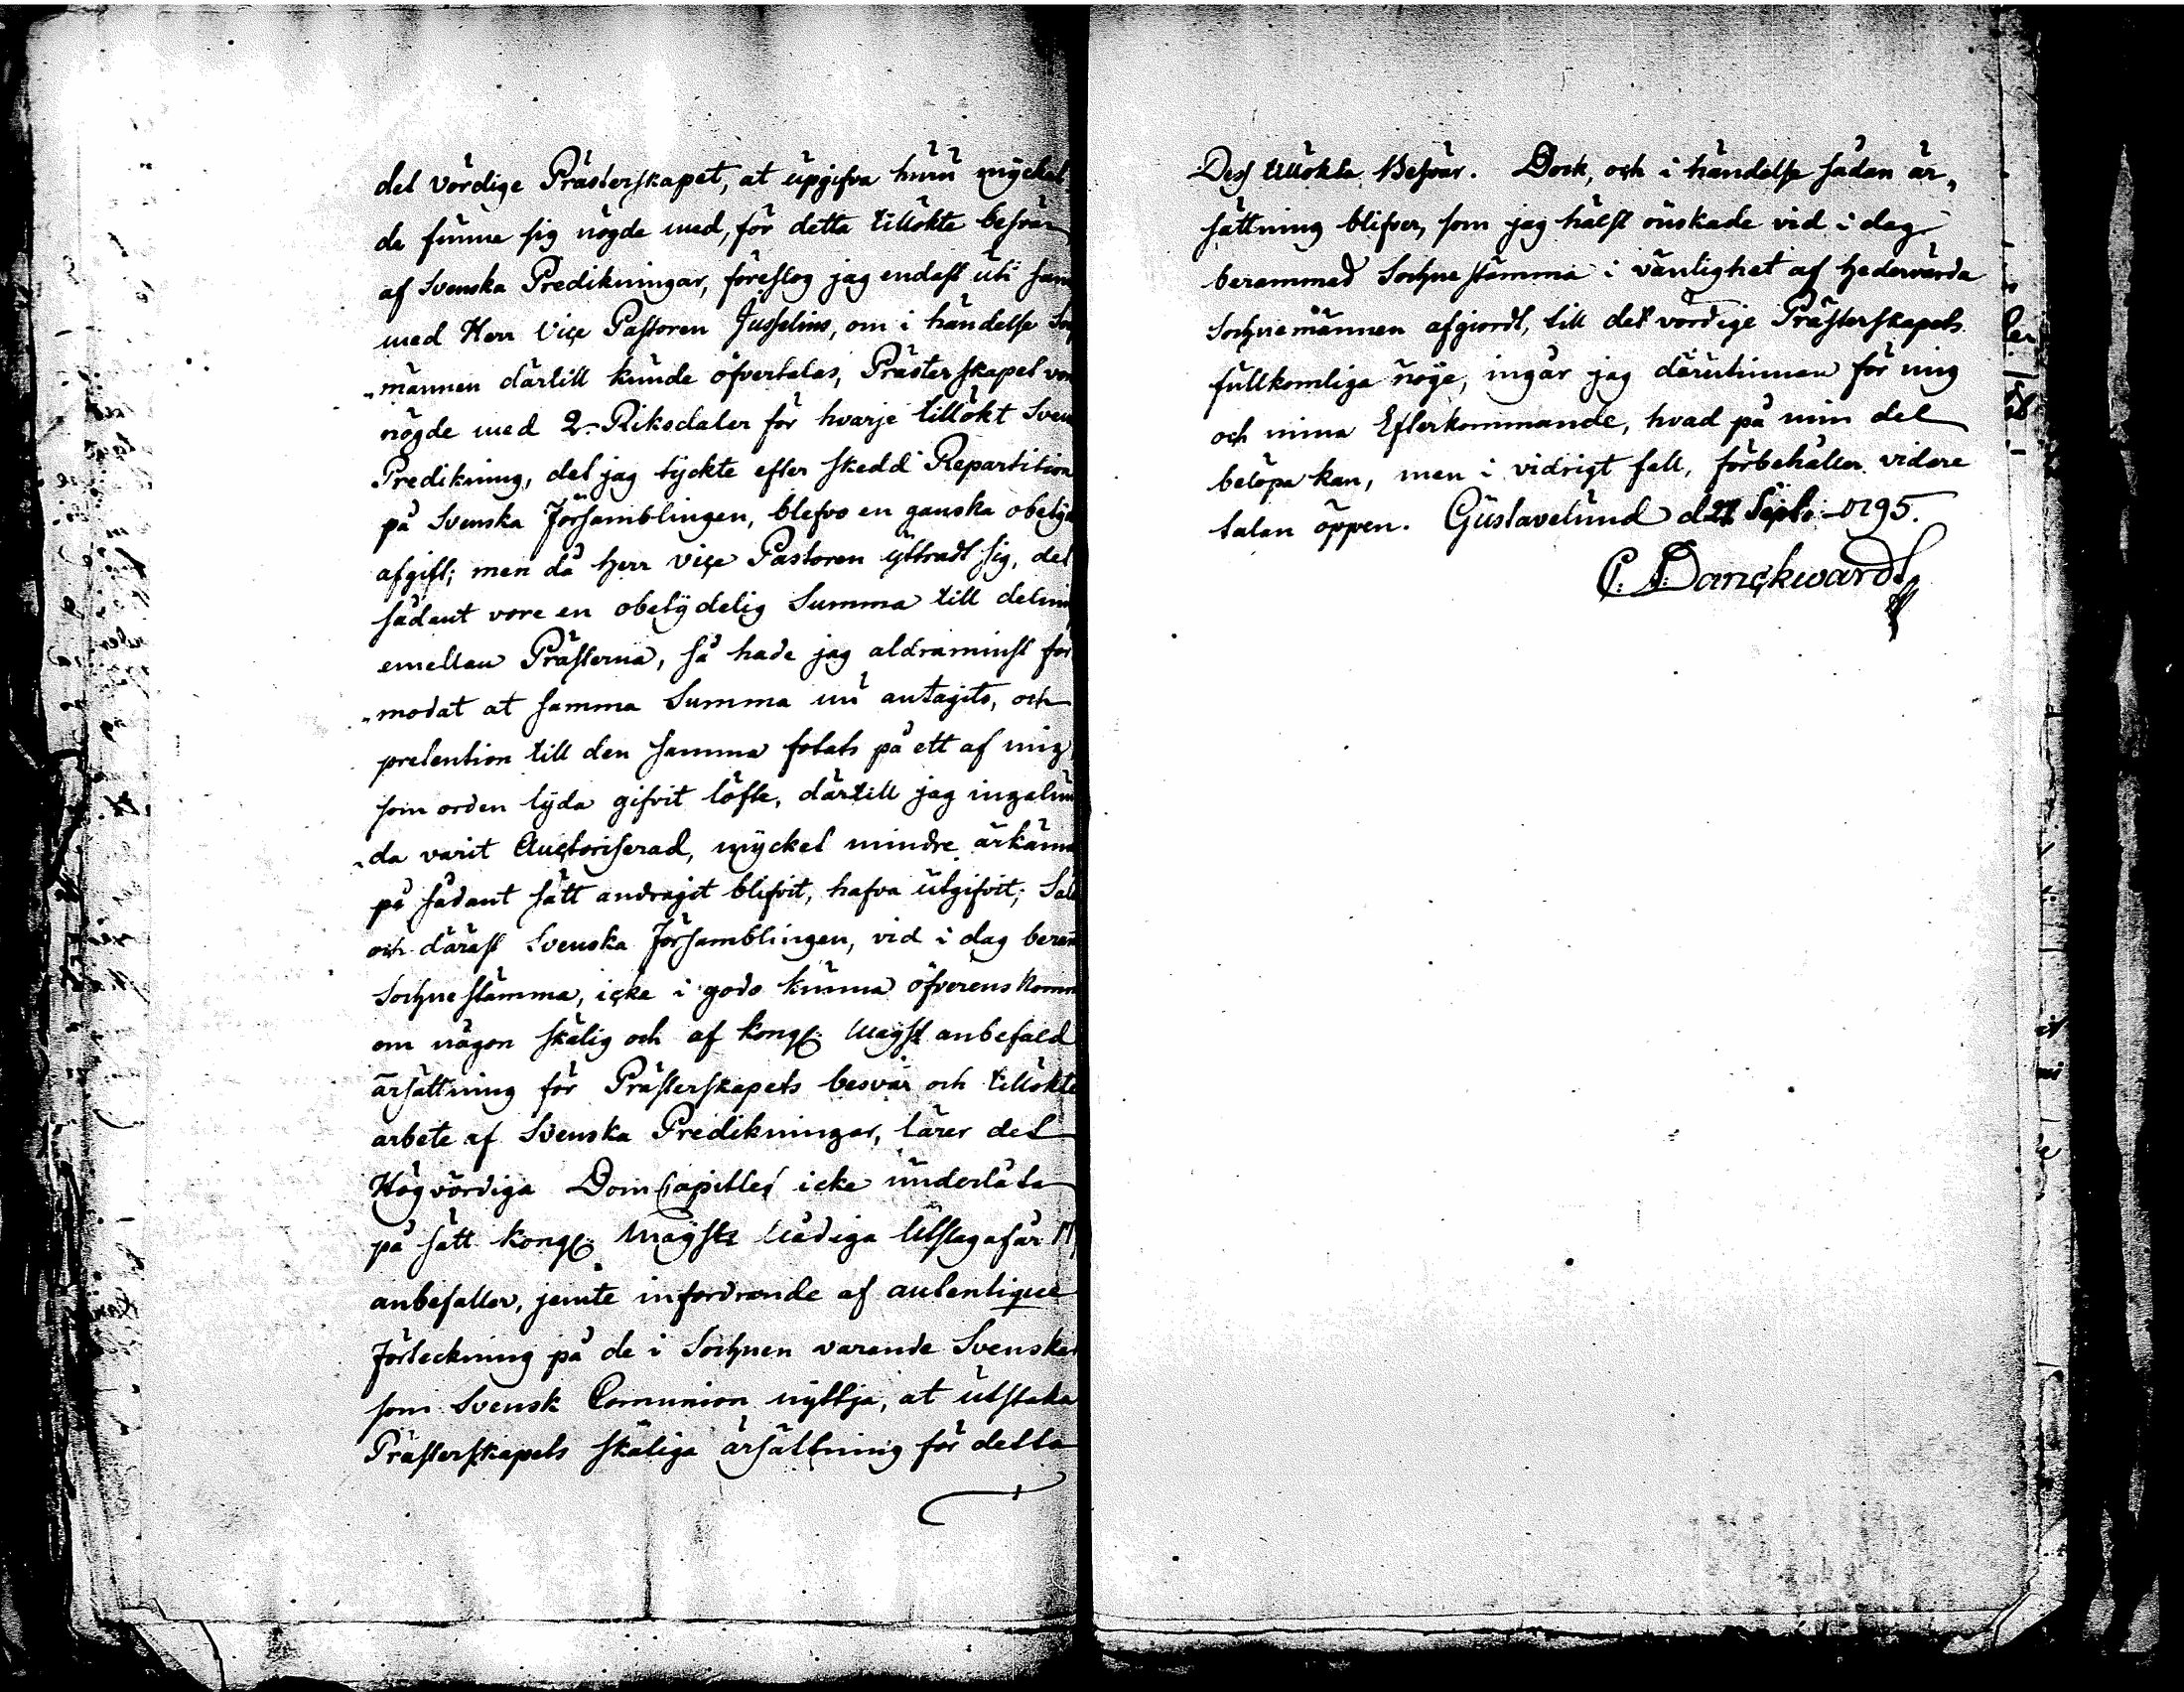 det vördige Prästerskapet, at upgifva huru mycket
de funne sig nögde med, för detta tillökte besvär
af Svenska Predikningar, föreslog jag endast uti sam
med Herr Vice Pastoren Jusselius, om i händelse Soc
männen därtill kunde öfvertalas, Prästerskapet vor
nögde med 2 Riksdaler för hvarje tillökt Sven
Predikning, det jag tyckte efter skedd Repartition
på Svenska Församblingen, blefvo en ganska obetyd
afgift; men då Herr Vice Pastoren yttradt sig, det
sådant vore en obetydelig Summa till delni
emellan Prästerna, så hade jag aldraminst för
modat at samma Summa nu antagits, och
pretention till den samma fotats på ett af mig
som orden lyda gifvit löfte, därtill jag ingalun
da varit Auctoriserad, myckel mindre ärkänna
på sådant sätt andragit blifvit, hafva utgifvit;
och däräst Svenska Församblingen, vid i dag beram
Sochnestämma, icke i godo kunna öfverenskomm
om någon skälig och af Kongl. Mayst anbefald
ärsättning för Prästerskapets besvär och tillökte
arbete af Svenska Predikningar, lärer det
Högvördiga DomCapitlet icke underlåta
på sätt Kongl. Maysts Nådiga Utslag af år 17
anbefaller, jemte infordrande af autentique
Förteckning på de i Sochnen varande Svenska
som Svensk Comunion nyttja, at utstaka
Prästerskapets skäliga ärsättning för detta
Dess tillökta Besvär. Dock, och i händelse sådan är„
sättning blifver, som jag hälst önskade vid i dag
berammad Sochnestämma i vänlighet af Hedervärda
Sochnemännen afgiordt, till det vördige Prästerskapets
fullkomliga nöje, ingår jag därutinnan för mig
och mina Efterkommande, hvad på min del
belöpa kan, men i vidrigt fall, förbehåller vidare
talan öppen. Gustavelund d 27 Sept: 1795.
C. A: Danckwardt